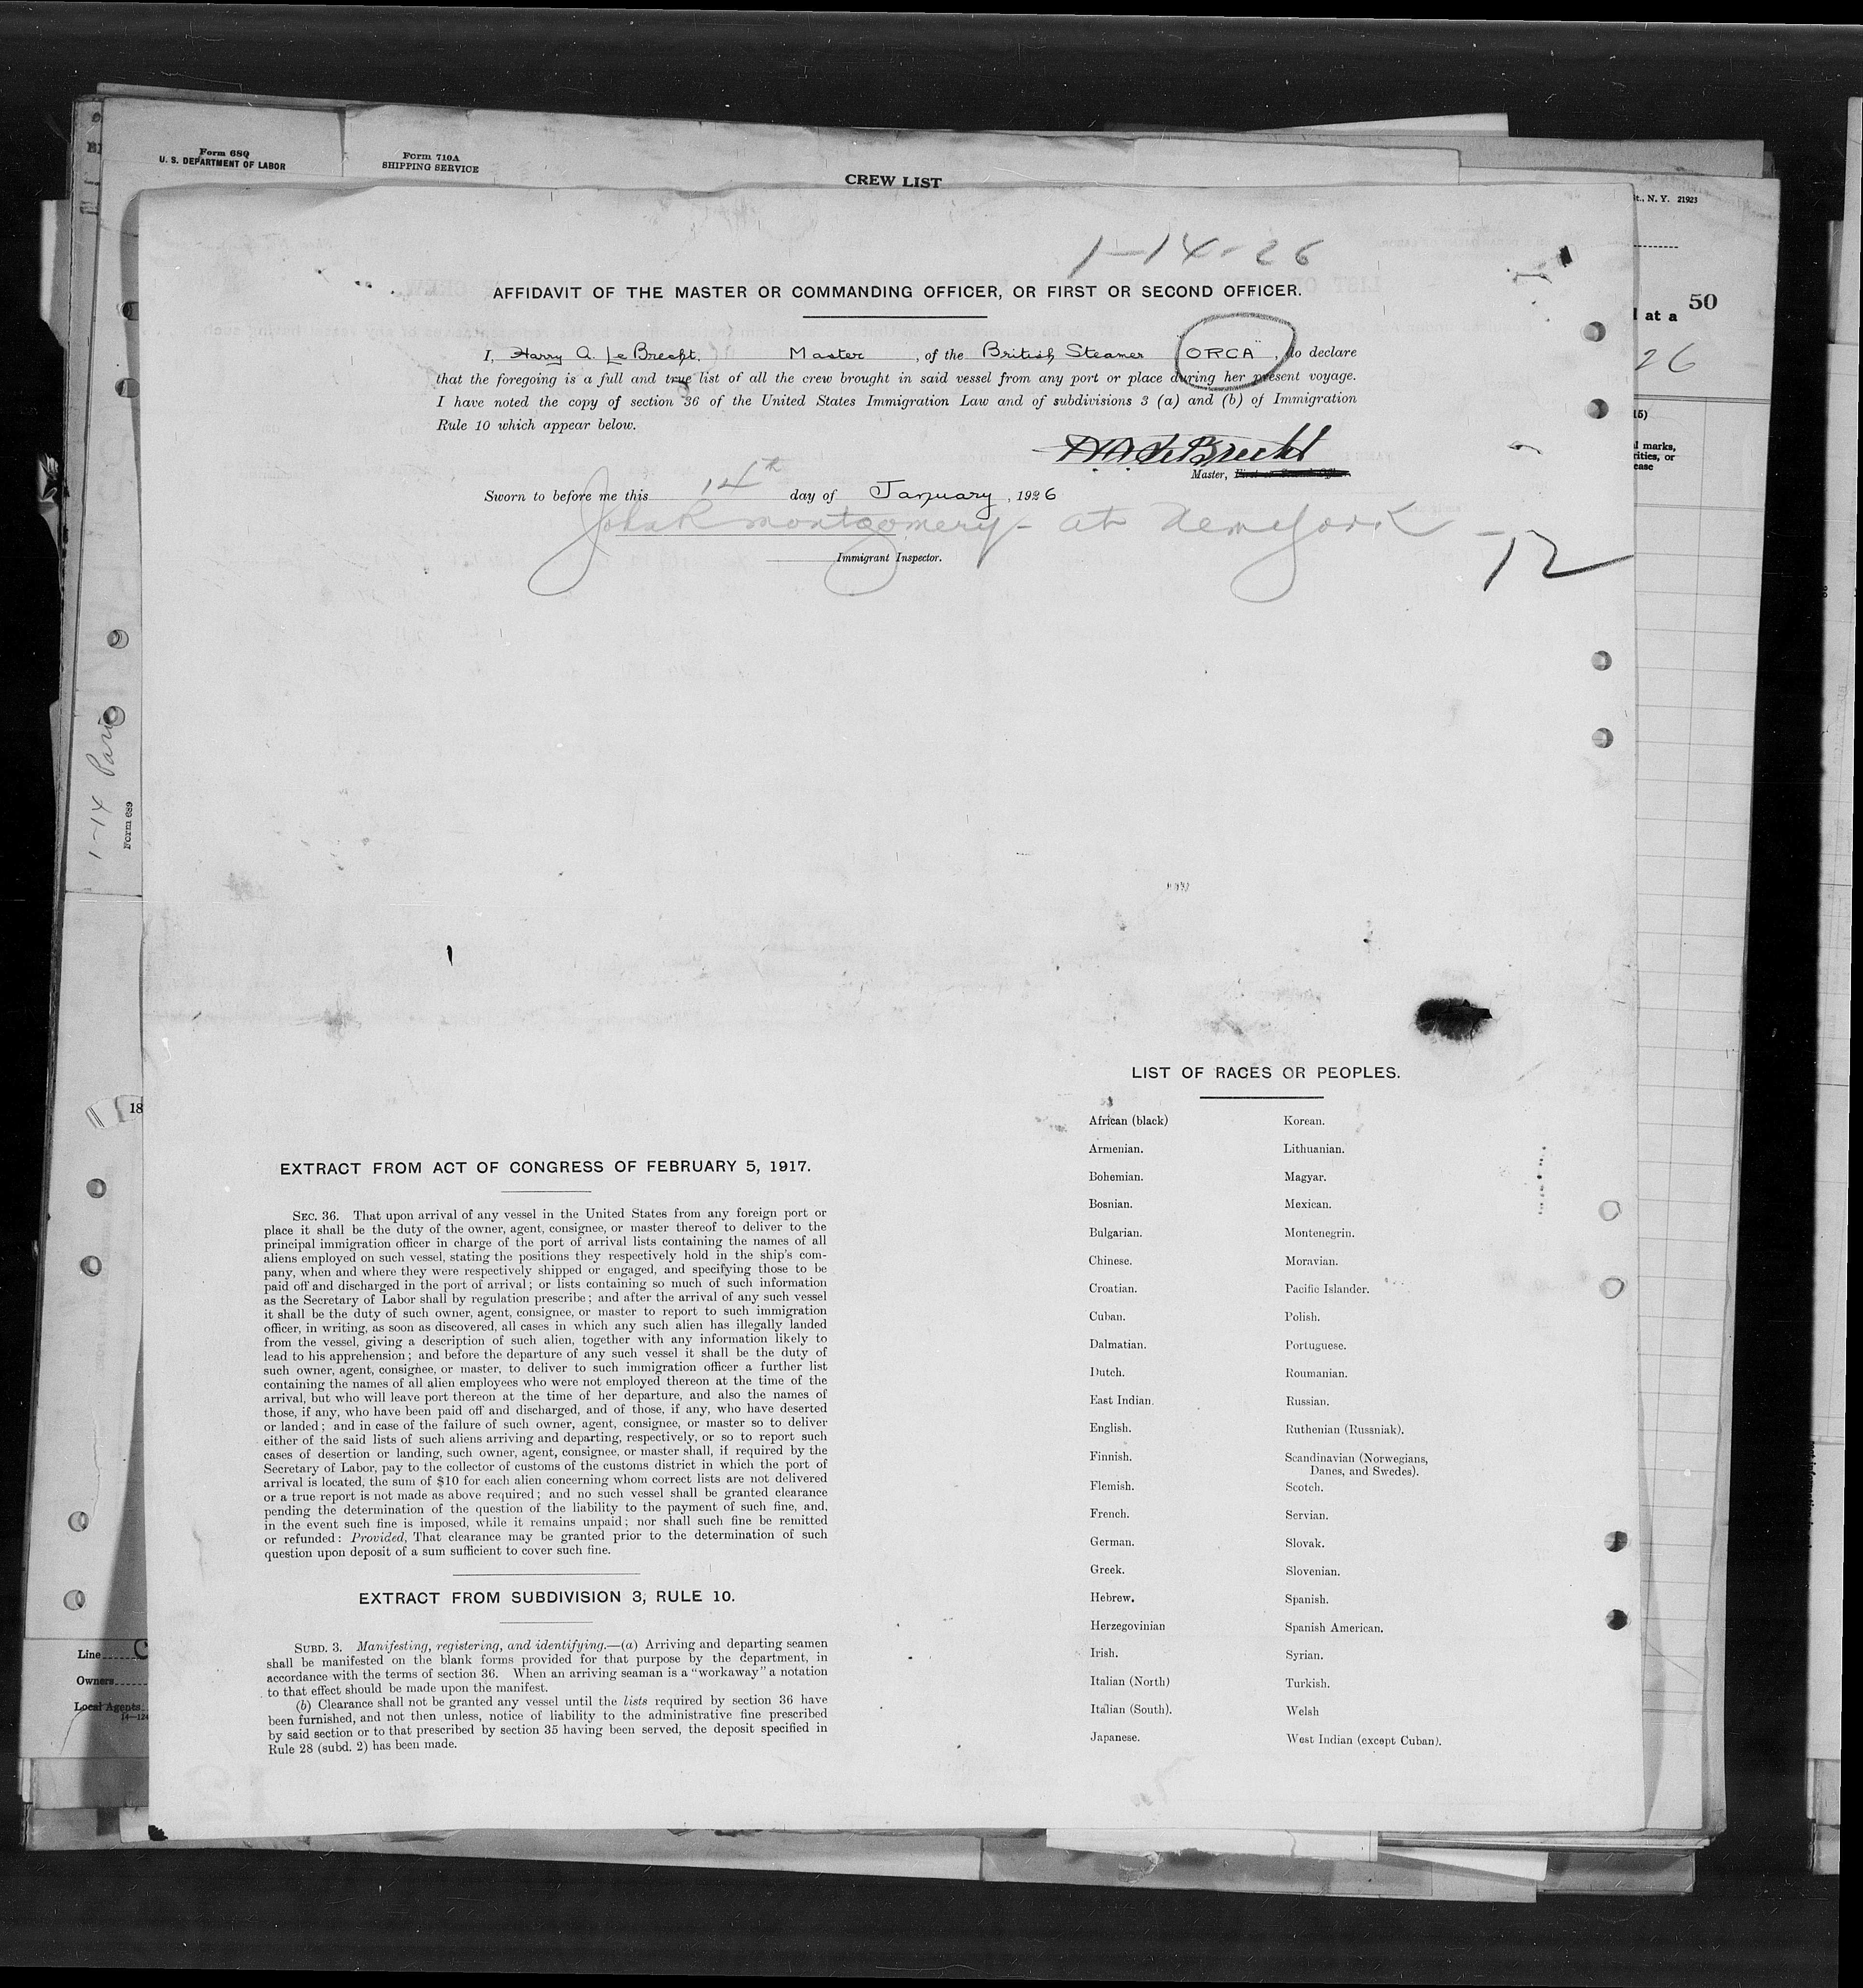 Form 689
U. S. DEPARTMENT OF LABOR
Form 710A
SHIPPING SERVICE
CREW LIST
St., N. Y. 21923
50
at a
26
15)
marks,
ease
1-14-26
AFFIDAVIT OF THE MASTER OR COMMANDING OFFICER, OR FIRST OR SECOND OFFICER.
I, Harry A. Le Brecht, Master, of the British Steamer "ORCA", do declare
that the foregoing is a full and true list of all the crew brought in said vessel from any port or place during her present voyage.
I have noted the copy of section 36 of the United States Immigration Law and of subdivisions 3 (a) and (b) of Immigration
Rule 10 which appear below.
H A Le Brecht
Master, First or Second Officer.
Sworn to before me this 14th day of January, 1926
John R Montgomery - at New York
Immigrant Inspector.
-12
1-14 Paris
Form 689
18
Line
Owners
Local Agents
EXTRACT FROM ACT OF CONGRESS OF FEBRUARY 5, 1917.
SEC. 36. That upon arrival of any vessel in the United States from any foreign port or
place it shall be the duty of the owner, agent, consignee, or master thereof to deliver to the
principal immigration officer in charge of the port of arrival lists containing the names of all
aliens employed on such vessel, stating the positions they respectively hold in the ship's com-
pany, when and where they were respectively shipped or engaged, and specifying those to be
paid off and discharged in the port of arrival; or lists containing so much of such information
as the Secretary of Labor shall by regulation prescribe; and after the arrival of any such vessel
it shall be the duty of such owner, agent, consignee, or master to report to such immigration
officer, in writing, as soon as discovered, all cases in which any such alien has illegally landed
from the vessel, giving a description of such alien, together with any information likely to
lead to his apprehension; and before the departure of any such vessel it shall be the duty of
such owner, agent, consignee, or master, to deliver to such immigration officer a further list
containing the names of all alien employees who were not employed thereon at the time of the
arrival, but who will leave port thereon at the time of her departure, and also the names of
those, if any, who have been paid off and discharged, and of those, if any, who have deserted
or landed; and in case of the failure of such owner, agent, consignee, or master so to deliver
either of the said lists of such aliens arriving and departing, respectively, or so to report such
cases of desertion or landing, such owner, agent, consignee, or master shall, if required by the
Secretary of Labor, pay to the collector of customs of the customs district in which the port of
arrival is located, the sum of $10 for each alien concerning whom correct lists are not delivered
or a true report is not made as above required; and no such vessel shall be granted clearance
pending the determination of the question of the liability to the payment of such fine, and,
in the event such fine is imposed, while it remains unpaid; nor shall such fine be remitted
or refunded: Provided, That clearance may be granted prior to the determination of such
question upon deposit of a sum sufficient to cover such fine.
EXTRACT FROM SUBDIVISION 3, RULE 10.
SUBD. 3. Manifesting, registering, and identifying.—(a) Arriving and departing seamen
shall be manifested on the blank forms provided for that purpose by the department, in
accordance with the terms of section 36. When an arriving seaman is a "workaway" a notation
to that effect should be made upon the manifest.
(b) Clearance shall not be granted any vessel until the lists required by section 36 have
been furnished, and not then unless, notice of liability to the administrative fine prescribed
by said section or to that prescribed by section 35 having been served, the deposit specified in
Rule 28 (subd. 2) has been made.
LIST OF RACES OR PEOPLES.
African (black)
Armenian.
Bohemian.
Bosnian.
Bulgarian.
Chinese.
Croatian.
Cuban.
Dalmatian.
Dutch.
East Indian.
English.
Finnish.
Flemish.
French.
German.
Greek.
Hebrew.
Herzegovinian
Irish.
Italian (North)
Italian (South).
Japanese.
Korean.
Lithuanian.
Magyar.
Mexican.
Montenegrin.
Moravian.
Pacific Islander.
Polish.
Portuguese.
Roumanian.
Russian.
Ruthenian (Russniak).
Scandinavian (Norwegians,
Danes, and Swedes).
Scotch.
Servian.
Slovak.
Slovenian.
Spanish.
Spanish American.
Syrian.
Turkish.
Welsh
West Indian (except Cuban).